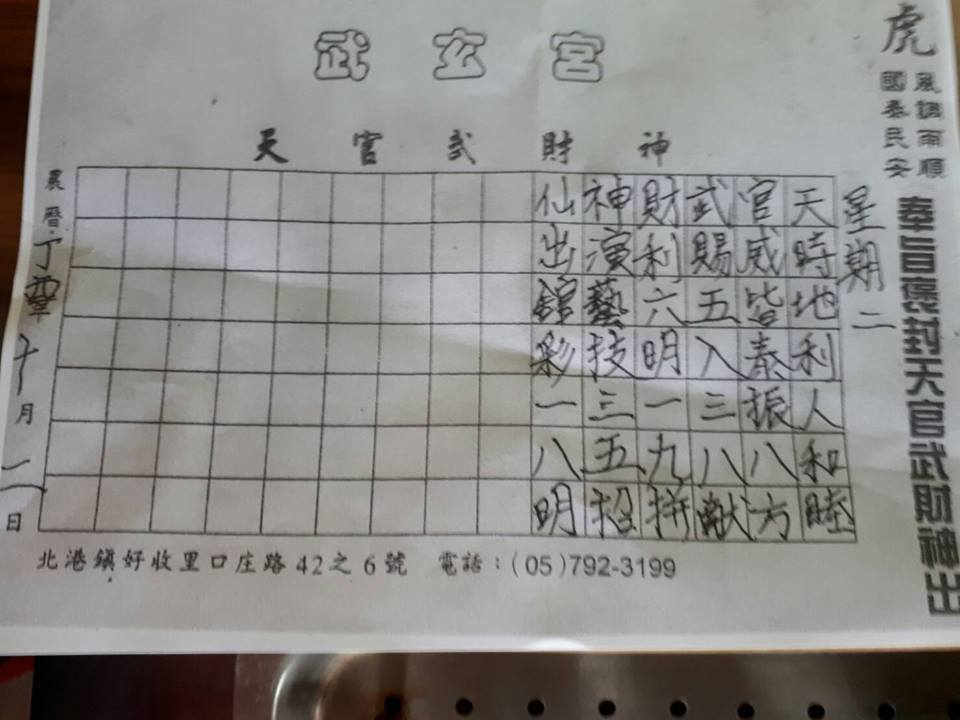 武玄宮
天官武財神
虎
風調雨順
國泰民安
奉旨葆封天官武財神出
星期二
天時地利人和睦
官威皆泰振八方
武賜五入三八獻
財利六明一九拼
神演藝技三五招
仙出館彩一八明
農曆丁十月二日
北港鎮好收里口庄路42之6號 電話：(05)792-3199